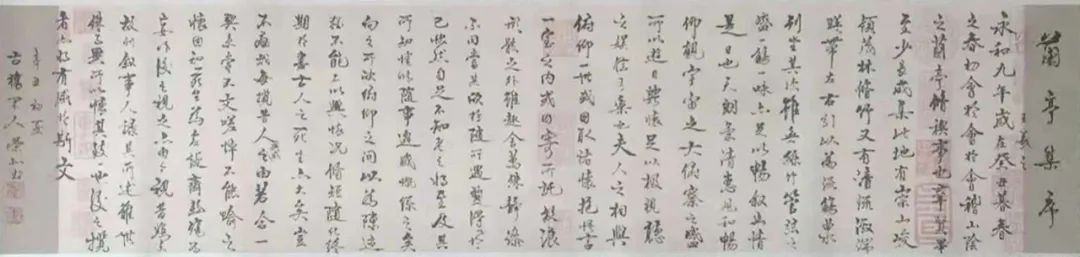 蘭亭集序
王羲之
永和九年歲在癸丑暮春
之春初會於會稽山陰
之蘭亭脩禊事也羣賢畢
至少長咸集此地有崇山峻
領茂林脩竹又有清流激湍
暎帶左右引以為流觴曲水
列坐其次雖無絲竹管弦之
盛觴一詠亦足以暢敘幽情
是日也天朗氣清惠風和暢
仰觀宇宙之大俯察之盛
可以遊目騁懷足以極視聽
之娛信可樂也夫人之相與
俯仰一世或取諸懷抱悟言
一室之內或因寄所託放浪
形骸之外雖趣舍萬殊靜躁
不同當其欣於所遇暫得於
己快然自足不知老之將至及其
所情隨事遷感慨係之矣
向之所欣俯仰之間以為陳迹
猶不能不以興懷況脩短隨化終
期於盡古人云死生亦大矣豈
不痛哉每攬昔人興感之由若合一
契未嘗不文嗟悼不能喻之
懷固知死生為虛誕齊彭殤為
妄作後之視今亦由今之視昔悲夫
故列敘時人錄其所述雖世
殊事異所以懷其致一也後之攬
者亦將有感於斯文
辛丑初夏
古人書